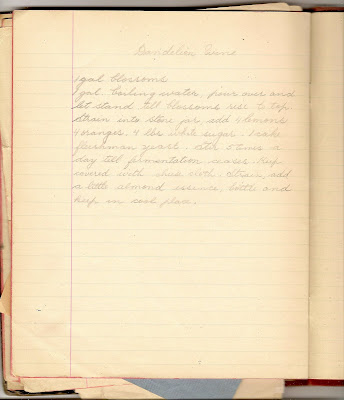 Dandelion Wine
1 gal blossoms
1 gal. boiling water, pour over and
let stand till blossoms rise to top
Strain into stone jar, add 4 lemons
4 oranges. 4 lbs white sugar. 1 cake
fleishman yeast. Stir 5 times a
day till fermentation ceases. Keep
covered with cloth. Strain, add
a little almond essence, bottle and
keep in cool place.